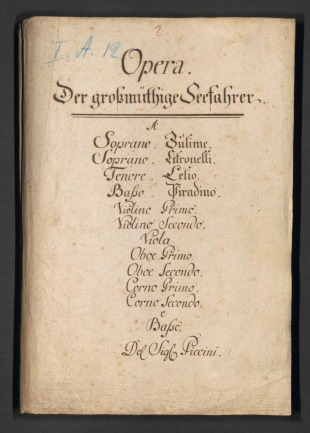 2
I. A. 12
Opera.
Der großmüthige Seefahrer.
A
Soprano. Zulime.
Soprano. Citronelli.
Tenore. Lelio.
Baßo. Tiradino.
Violino Primo.
Violino Secondo.
Viola
Oboe Primo.
Oboe Secondo.
Corno Primo.
Corno Secondo.
e
Baßo.
Del Sigl Piccini.